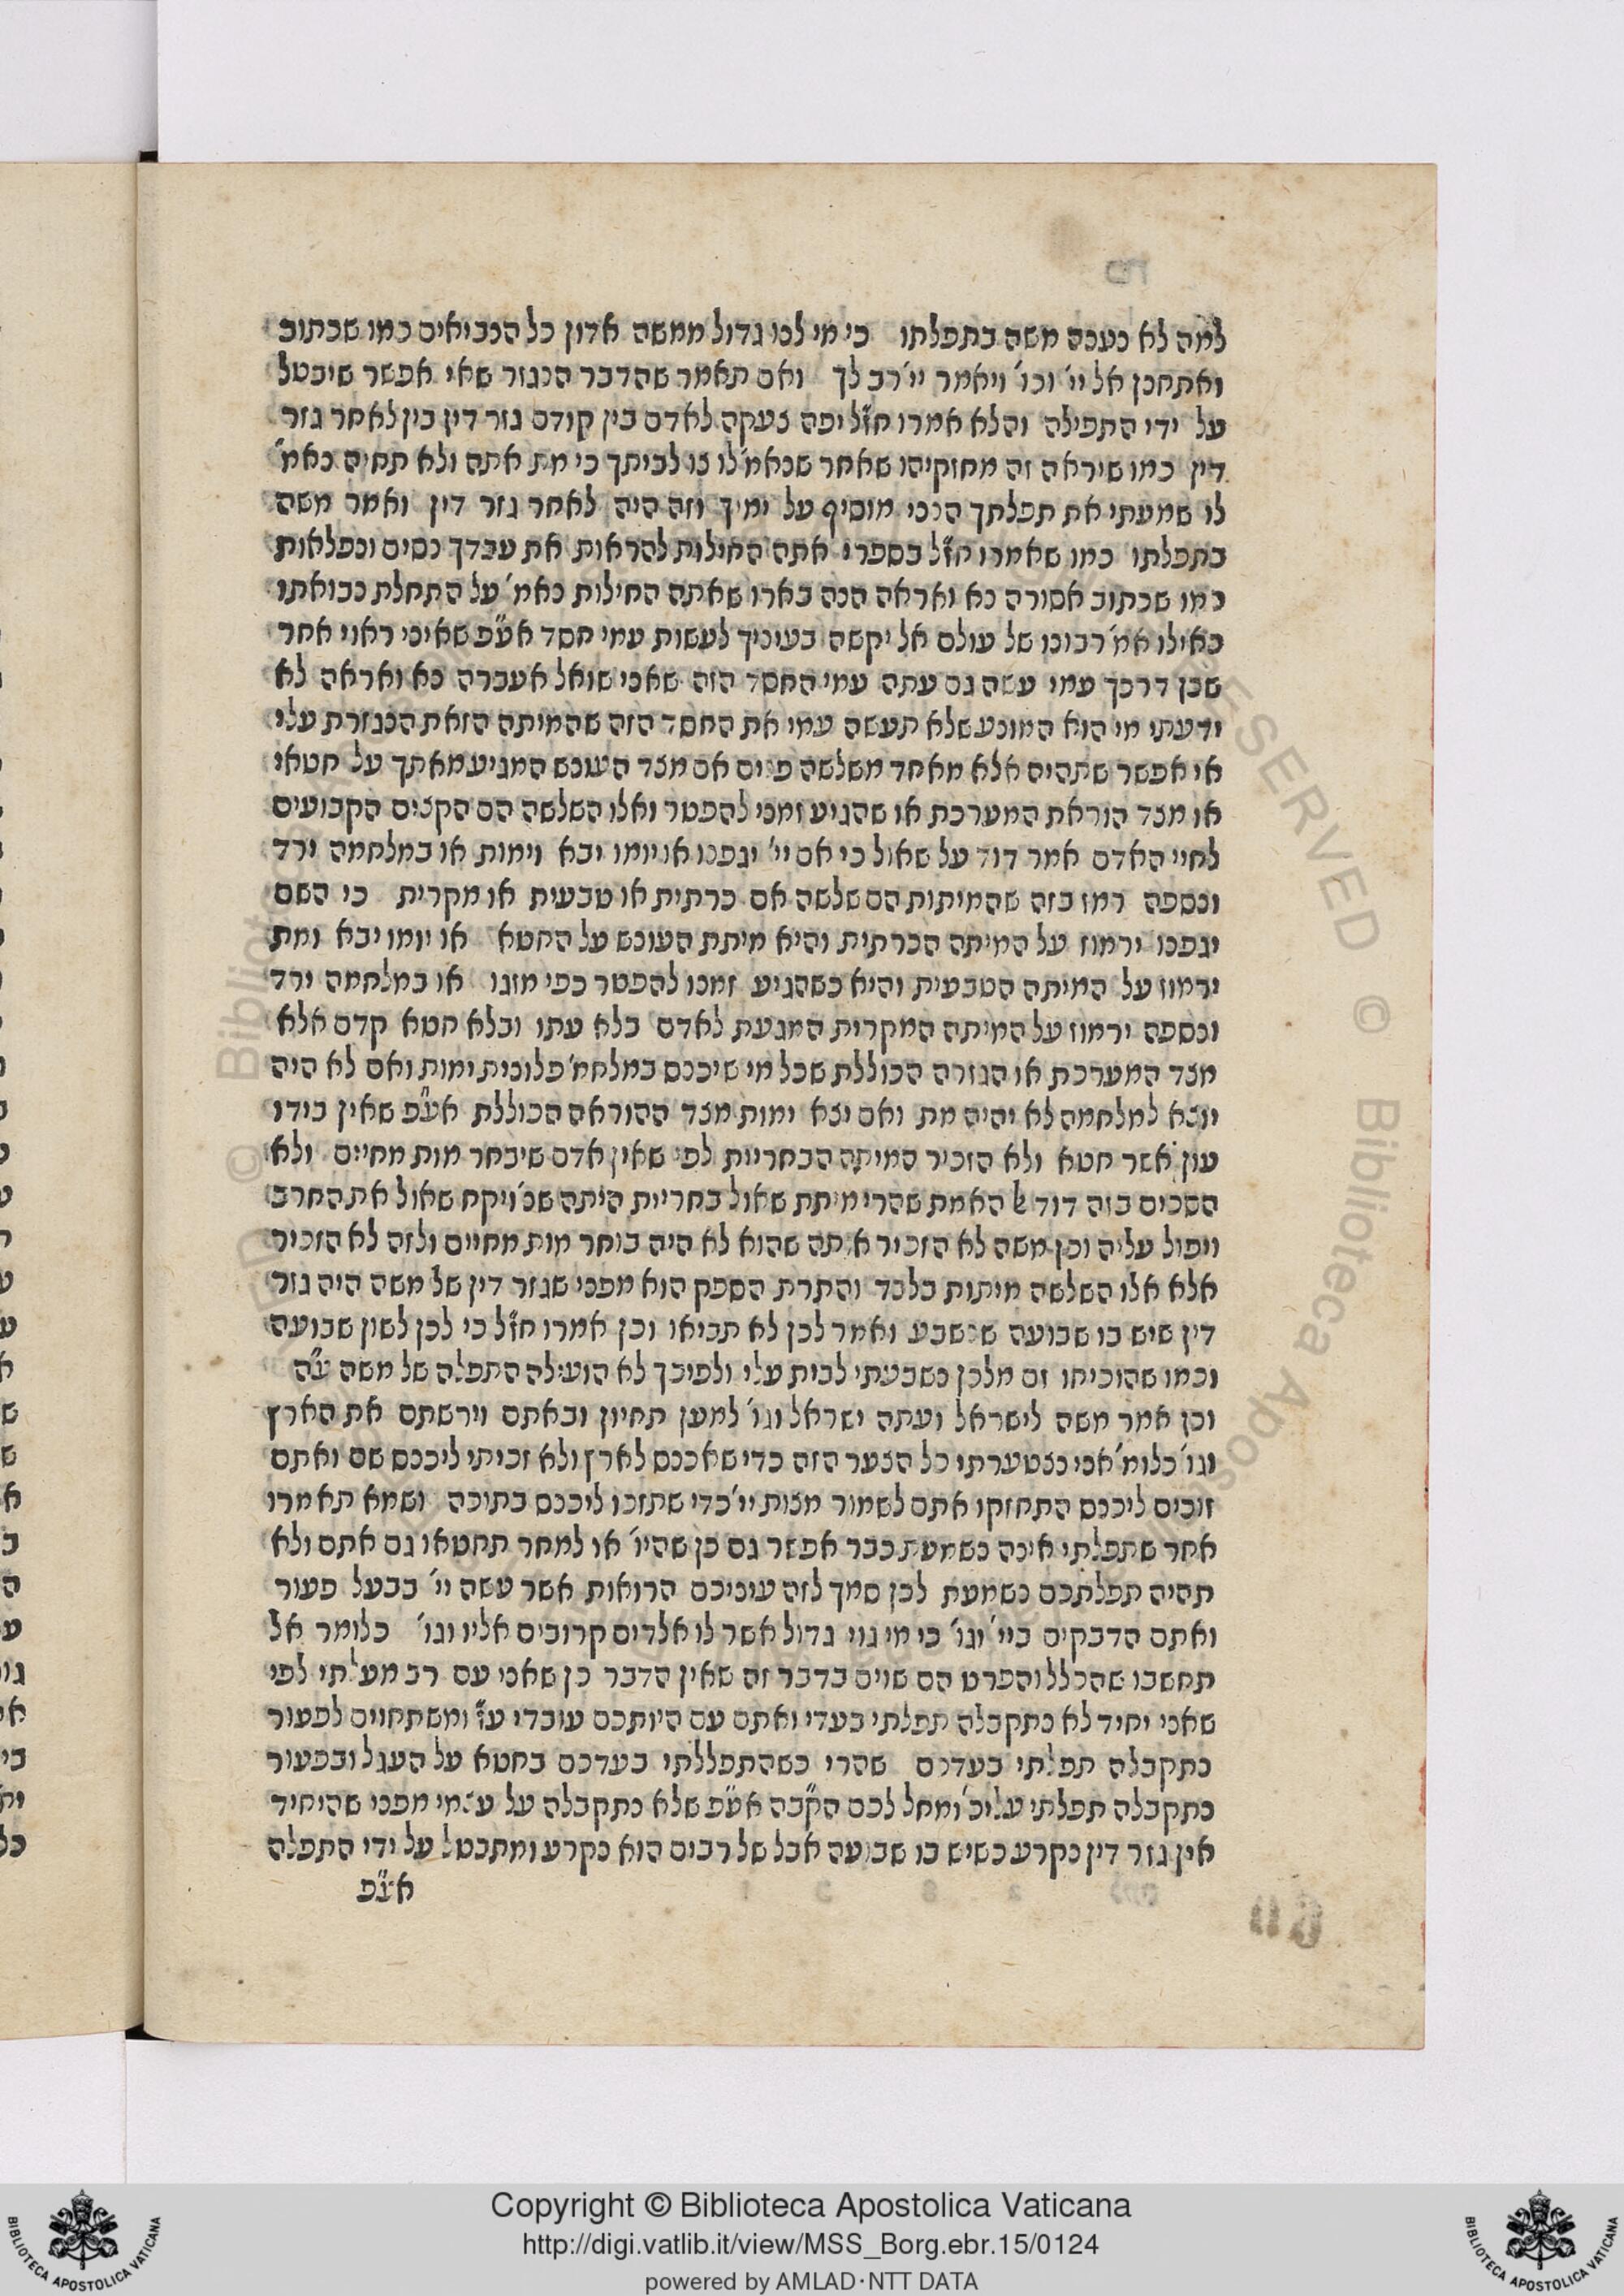 למה לא נענה משה בתפלתו כי מי לנו גדול ממשה אדון כל הנביאים כמו שכתוב
ואתחנן אל יי׳ וכו׳ ויאמר יי׳ רב לך ואם תאמר שהדבר הנגזר שאי אפשר שיבטל
על ידי התפילה והלא אמרו חז״ל יפה צעקה לאדם בין קודם גזר דין בין לאחר גזר
דין כמו שיראה זה מחזקיהו שאחר שנאמ׳ לו צו לביתך כי מת אתה ולא תחיה נאמ׳
לו שמעתי את תפלתך הנני מוסיף על ימיך וזה היה לאחר גזר דין ואמר משה
בתפלתו כמו שאמרו חז״ל בספרי אתה החילות להראות את עבדך נסים ונפלאות
כמו שכתוב אסורה נא ואראה הנה בארו שאתה החילות נאמ׳ על התחלת נבואתו
כאילו אמ׳ רבונו של עולם אל יקשה בעיניך לעשות עמי חסד אע״פ שאיני ראוי אחר
שכן דרכך עמי עשה גם עתה עמי החסד הזה שאני שואל אעברה נא ואראה לא
ידעתי מי הוא המונע שלא תעשה עמי את החסד הזה שהמיתה הזאת הנגזרת עלי
אי אפשר שתהיה אלא מאחד משלשה פנים אם מצד העונש המגיע מאתך על חטאי
או מצד הוראת המערכת או שהגיע זמני להפטר ואלו השלשה הם הקצים הקבועים
לחיי האדם אמר דוד על שאול כי אם יי׳ יגפנו או יומו יבא וימות או במלחמה ירד
ונספה רמז בזה שהמיתות הם שלשה אם כרתית או טבעית או מקרית כי השם
יגפנו ירמוז על המיתה הכרתית והיא מיתת העונש על החטא או יומו יבא ומת
ירמוז על המיתה הטבעית והיא כשהגיע זמנו להפטר כפי מזגו או במלחמה ירד
ונספה ירמוז על המיתה המקרית המגעת לאדם בלא עתו ובלא חטא קדם אלא
מצד המערכת או הגזרה הכוללת שכל מי שיכנס במלחמ׳ פלונית ימות ואם לא היה
יוצא למלחמה לא יהיה מת ואם יצא ימות מצד ההוראה הכוללת אע״פ שאין בידו
עון אשר חטא ולא הזכיר המיתה הבחריית לפי שאין אדם שיבחר מות מחיים ולא
הסכים בזה דוד אל האמת שהרי מיתת שאול בחריית היתה שנ׳ ויקח שאול את החרב
ויפול עליה וכן משה לא הזכיר אותה שהוא לא היה בוחר מות מחיים ולזה לא הזכיר
אלא אלו השלשה מיתות בלבד והתרת הספק הוא מפני שגזר דין של משה היה גזר
דין שיש בו שבועה שנשבע ואמר לכן לא תביאו וכן אמרו חז״ל כי לכן לשון שבועה
וכמו שהוכיחו זה מלכן נשבעתי לבית עלי ולפיכך לא הועילה התפלה של משה ע״ה
וכן אמר משה לישראל ועתה ישראל וגו׳ למען תחיון ובאתם וירשתם את הארץ
וגו׳ כלומ׳ אני נצטערתי כל הצער הזה כדי שאכנס לארץ ולא זכיתי ליכנס שם ואתם
זוכים ליכנס התחזקו אתם לשמור מצות יי׳ כדי שתזכו ליכנס בתוכה ושמא תאמרו
אחר שתפלתי אינה נשמעת כבר אפשר גם כן שהיו׳ או למחר תחטאו גם אתם ולא
תהיה תפלתכם נשמעת לכן סמך לזה עיניכם הרואות אשר עשה יי׳ בבעל פעור
ואתם הדבקים ביי׳ וגו׳ כי מי גוי גדול אשר לו אלדים קרובים אליו וגו׳ כלומר אל
תחשבו שהכלל והפרט הם שוים בדבר זה שאין הדבר כן שאני עם רב מעלתי לפי
שאני יחיד לא נתקבלה תפלתי בעדי ואתם עם היותכם עובדי ע״ז ומשתחוים לפעור
נתקבלה תפלתי בעדכם שהרי כשהתפללתי בעדכם בחטא על העגל ובפעור
נתקבלה תפלתי עליכ׳ ומחל לכם הק״בה אע״פ שלא נתקבלה על עצמי מפני שהיחיד
אין גזר דין נקרע כשיש בו שבועה אבל של רבים הוא נקרע ומתבטל על ידי התפלה
אע״פ
Copyright © Biblioteca Apostolica Vaticana
http://digi.vatlib.it/view/MSS_Borg.ebr.15/0124
powered by AMLAD·NTT DATA